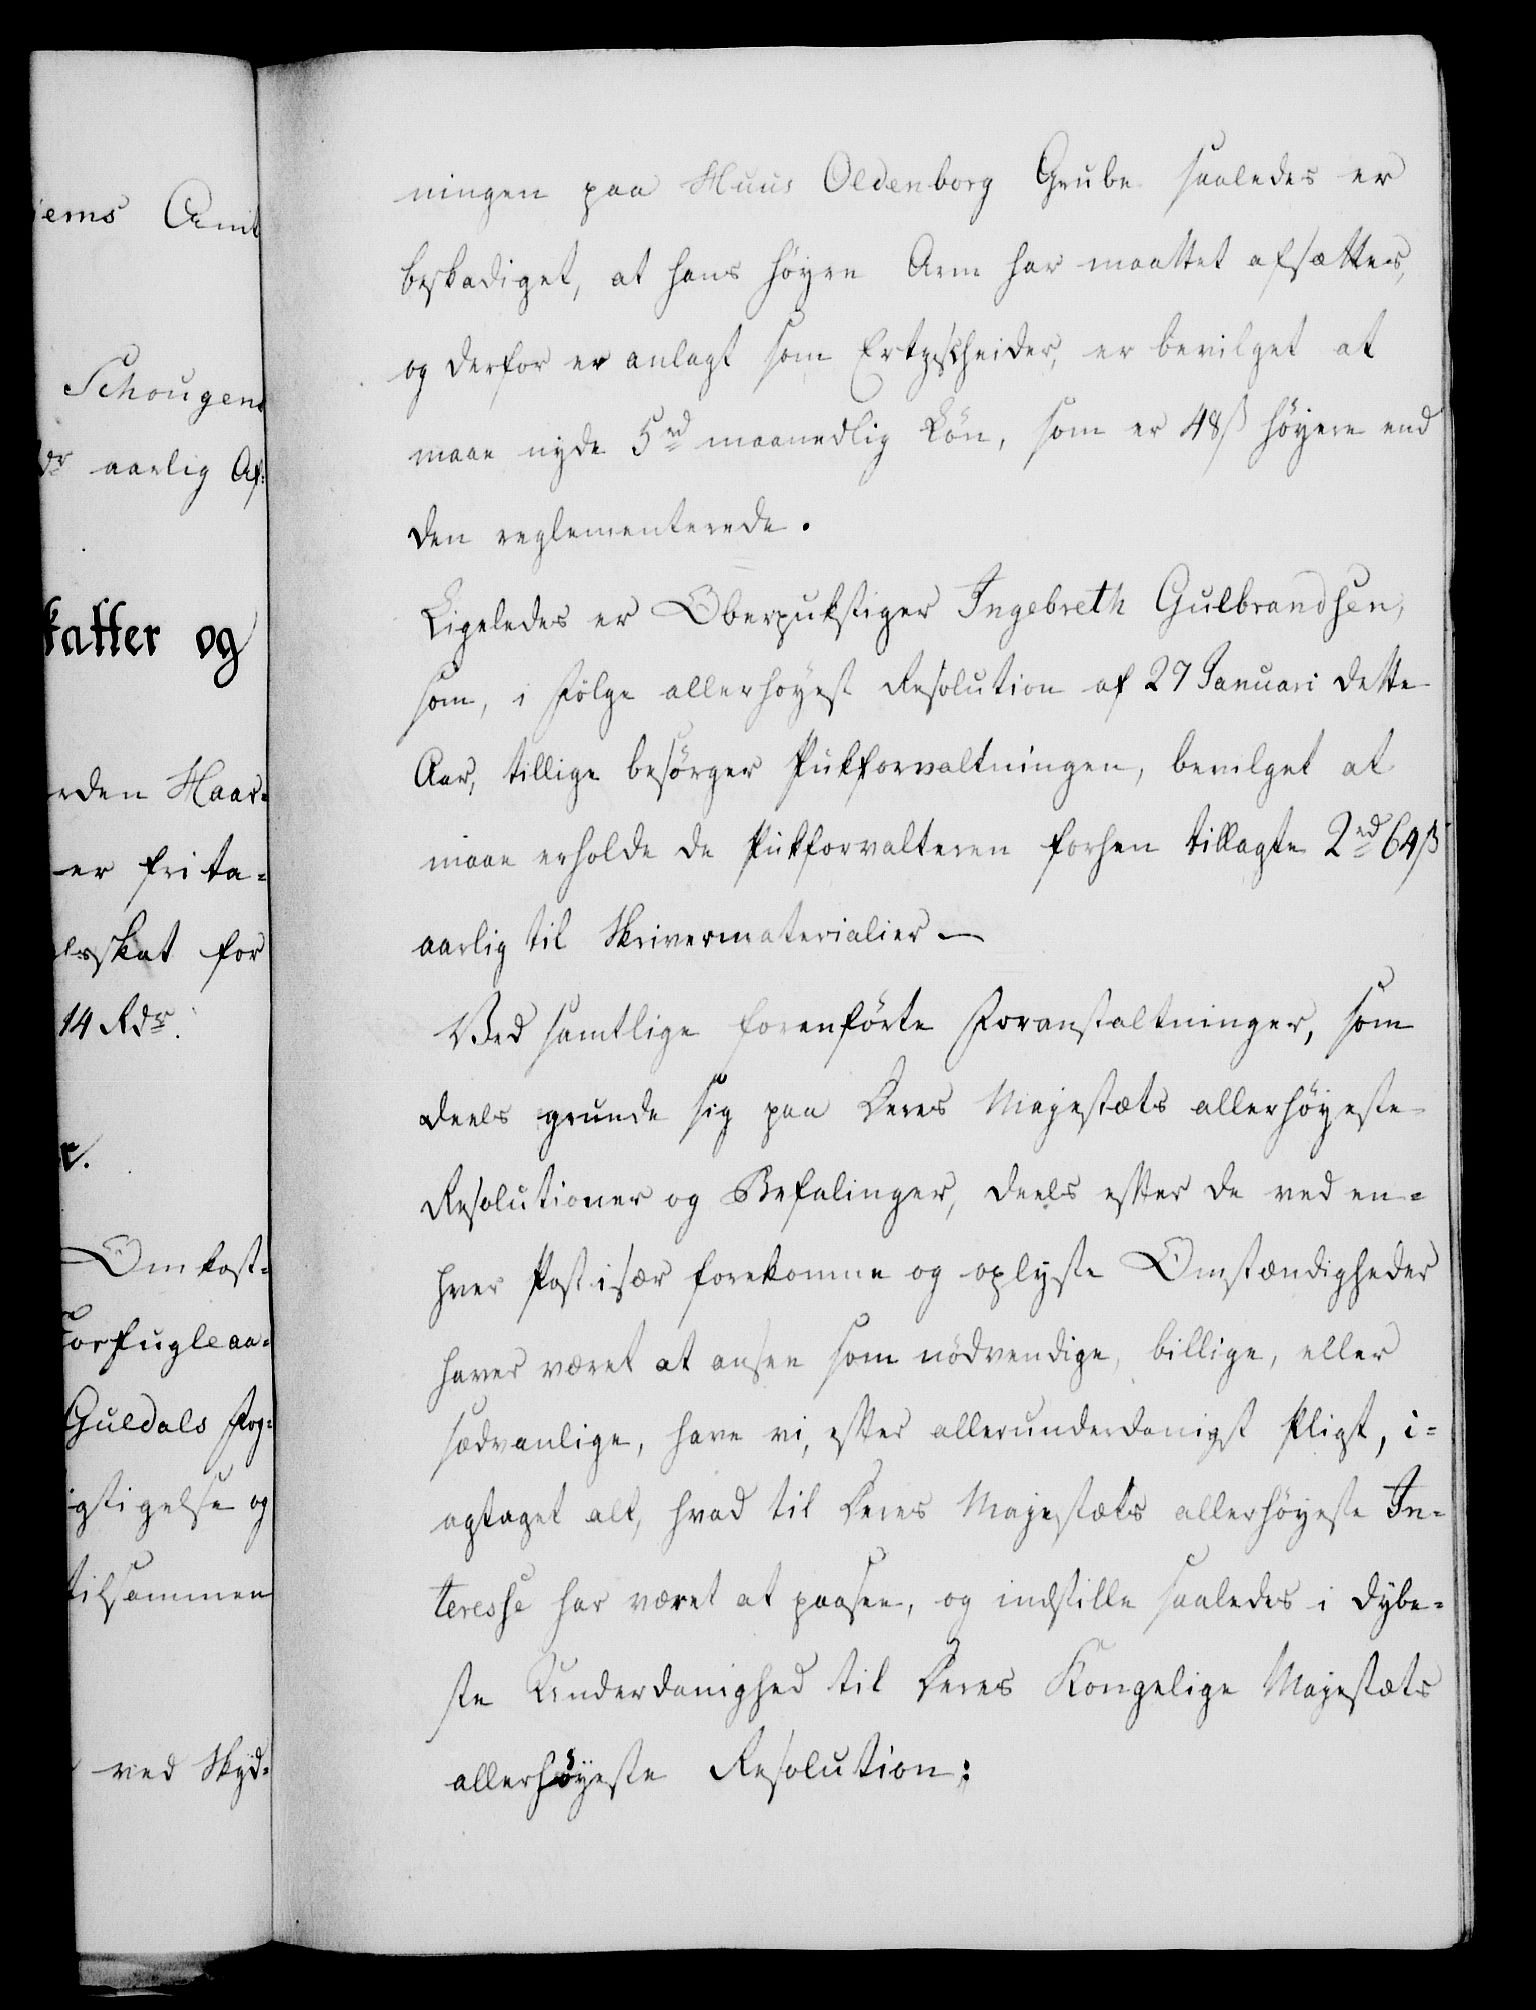 iems Amt
Schougens
dr aarlig Af:
katter og
rden Haar=
er frita=
elsskat for
14 Rdr.
r.
Omkost=
Torfugleaa=
Guldals Fog=
igtigelse og
tilsammen
ved Skyd=
ningen paa Huus Oldenborg Grube saaledes er
beskadiget, at hans höyre Arm har maattet afsættes,
og derfor er anlagt som Ertzscheider, er bevilget at
maae nyde 5 rd maanedlig Lön, som er 48 ß höyere end
den reglementerede.
Ligeledes er Oberpukstiger Ingebreth Gulbrandsen,
som, i Fölge allerhöyest Resolution af 27 Januari dette
Aar, tillige besörger Pukforvaltningen, bevilget at
maae erholde de Pukforvalteren forhen tillagte 2 rd 64 ß
aarlig til Skrivermaterialier —
Ved samtlige foranförte Foranstaltninger, som
deels grunde sig paa Deres Majestæts allerhöyeste
Resolutioner og Befalinger, deels efter de ved en=
hver Post især forekomne og oplyste Omstændigheder
haver været at ansee som nödvendige, billige, eller
sædvanlige, have vi, efter allerunderdanigst Pligt, i=
agtaget alt, hvad til Deres Majestæts allerhöyeste In=
teresse har været at paasee, og indstille saaledes i dybe=
ste Underdanighed til Deres Kongelige Majestæts
allerhöyeste Resolution: